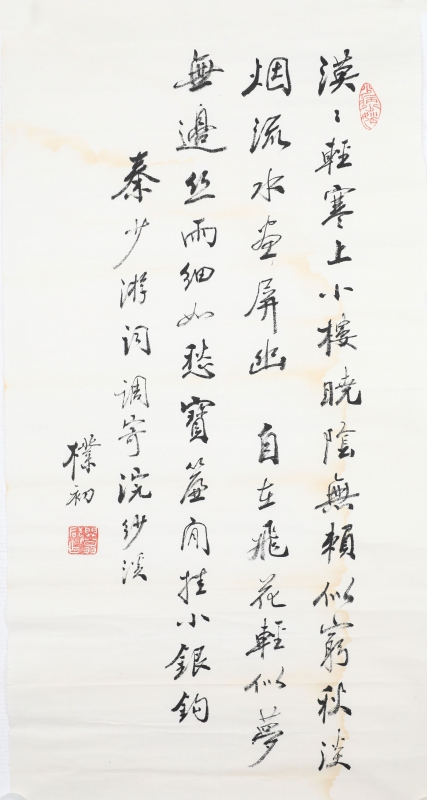 漠〻輕寒上小樓曉陰無賴似窮秋淡
烟流水畫屏幽 自在飛花輕似夢
無邊丝雨細如愁寶簾闲挂小銀鈎
秦少游词调寄浣纱溪
樸初